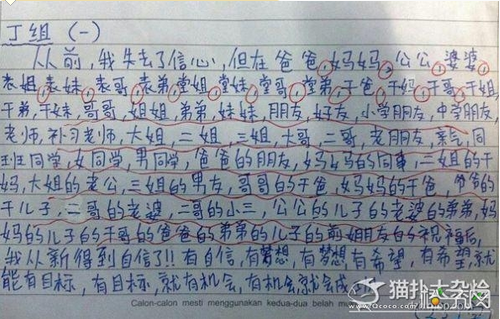 丁组 (一)
从前,我失去了信心,但在爸爸,妈妈,公公,婆婆
表姐,表妹,表哥,表弟,堂姐,堂妹,堂哥,堂弟,干爸,干妈,干哥,干姐,
干弟,干妹,哥哥,姐姐,弟弟,妹妹,朋友,好友,小学朋友,中学朋友,
老师,补习老师,大姐,二姐,三姐,大哥,二哥,老朋友,亲戚,同
班同学,女同学,男同学,爸爸的朋友,妈妈的同事,二姐的干
妈,大姐的老公,三姐的男友,哥哥的干爸,妈妈的干爸,爷爷的
干儿子,二哥的老婆,二哥的小三,公公的儿子的老婆的弟弟,妈
妈的儿子的干哥的爸爸的弟弟的儿子的前女朋友的祝福后,
我从新得到自信了!!有自信,有梦想,有梦想,有希望,有希望,就
能有目标,有目标,就有机会,有机会,就会成
Calon-calon mesti menggunakan kedua-dua belah mu
猫扑大杂烩